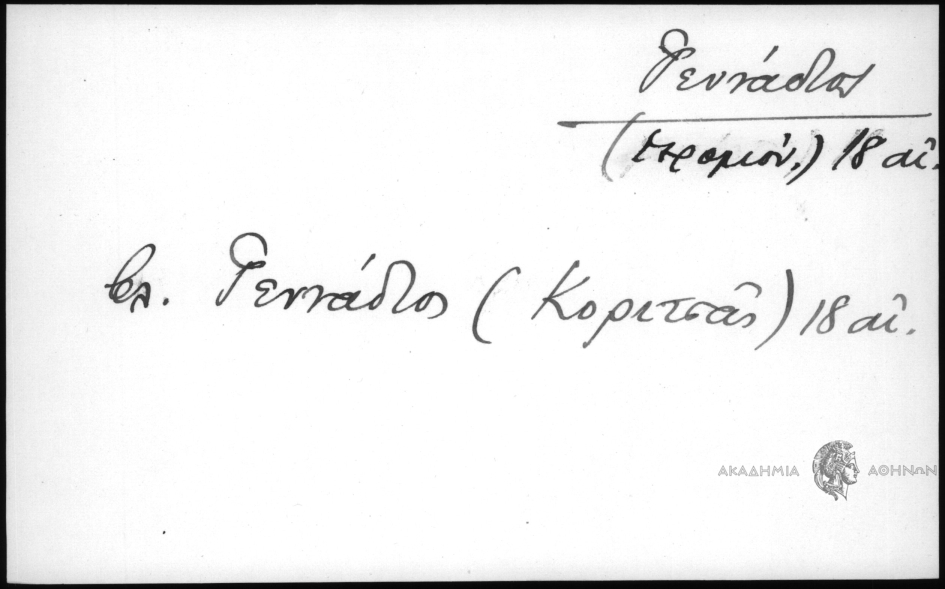 Γεννάδιος
(ἱερομον.) 18 αἰ.
βλ. Γεννάδιος (Κοριτσᾶς) 18 αἰ.
ΑΚΑΔΗΜΙΑ ΑΘΗΝΩΝ